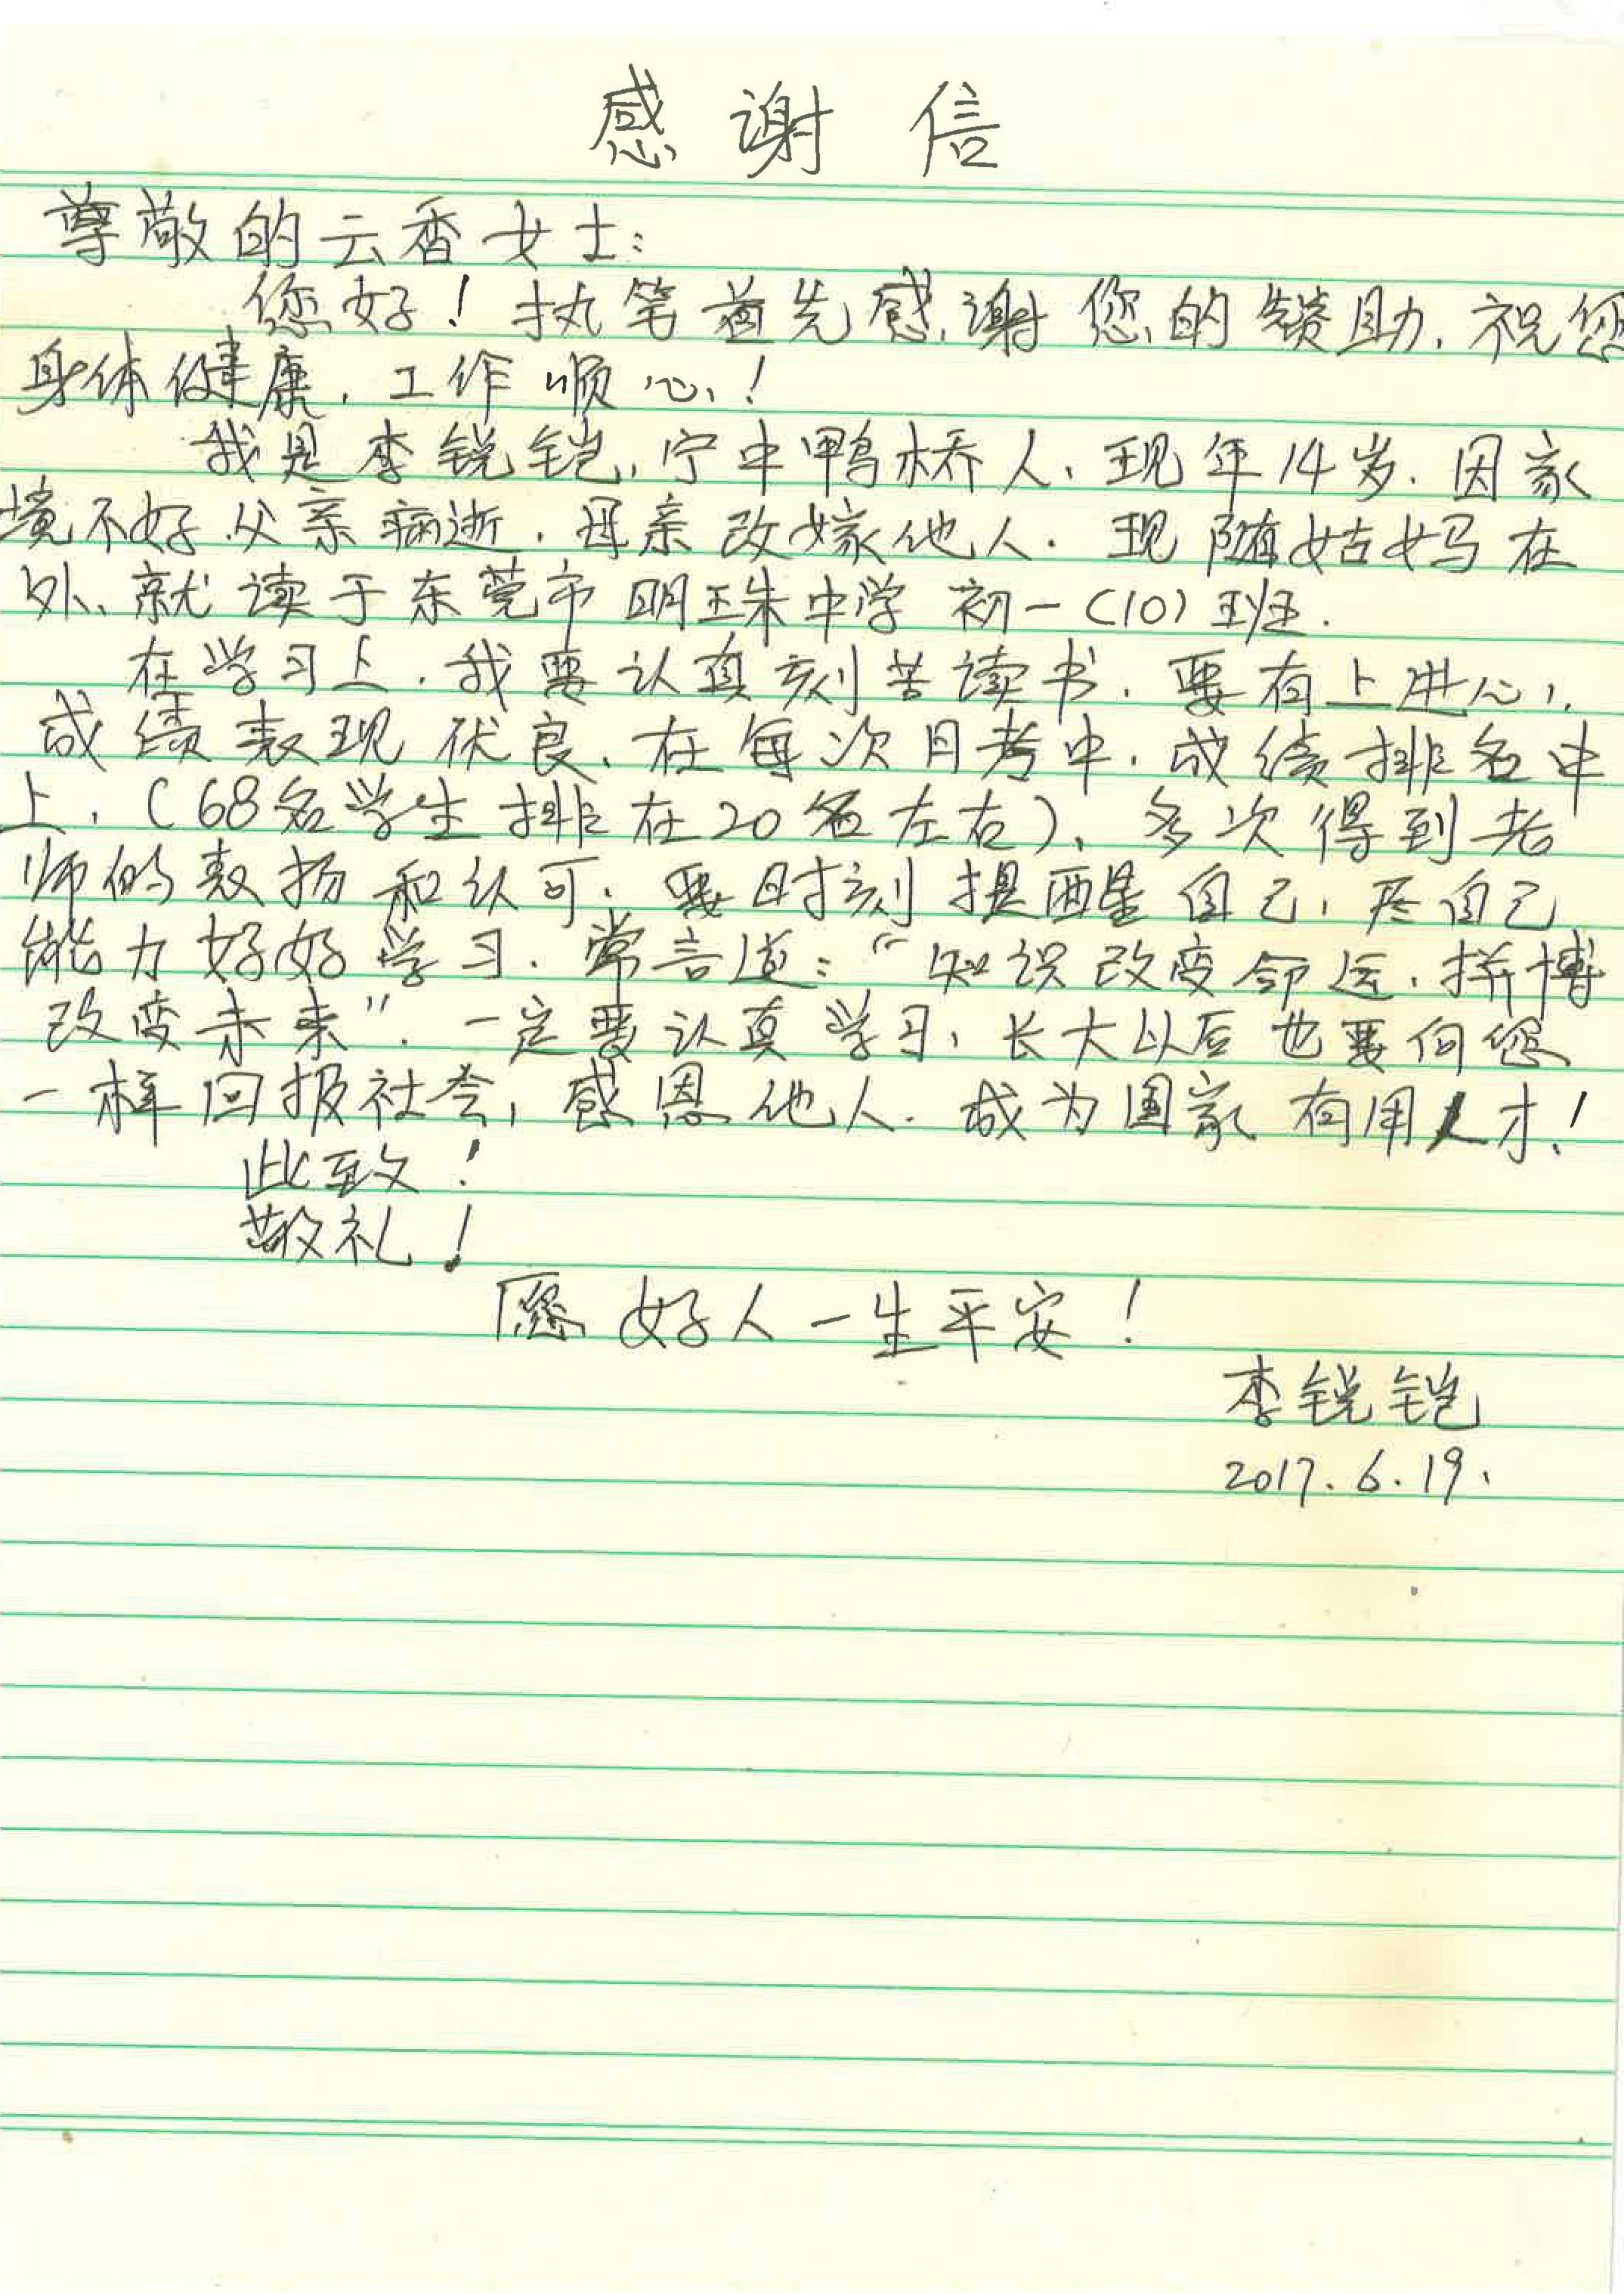 感谢信
尊敬的云香女士:
您好！执笔首先感谢您的赞助.祝您
身体健康.工作顺心！
我是李锐铠,宁中鸭桥人、现年14岁.因家
境不好.父亲病逝.母亲改嫁他人.现随姑妈在
外、就读于东莞市明珠中学初一(10)班.
在学习上.我要认真刻苦读书.要有上进心,
成绩表现优良、在每次月考中.成绩排名中
上.(68名学生排在20名左右)、多次得到老
师的表扬和认可.要时刻提醒自己,尽自己
能力好好学习.常言道:“知识改变命运.拼博
改变未来”.一定要认真学习,长大以后也要向您
一样回报社会,感恩他人.成为国家有用人才！
此致！
敬礼！
愿好人一生平安！
李锐铠
2017.6.19.